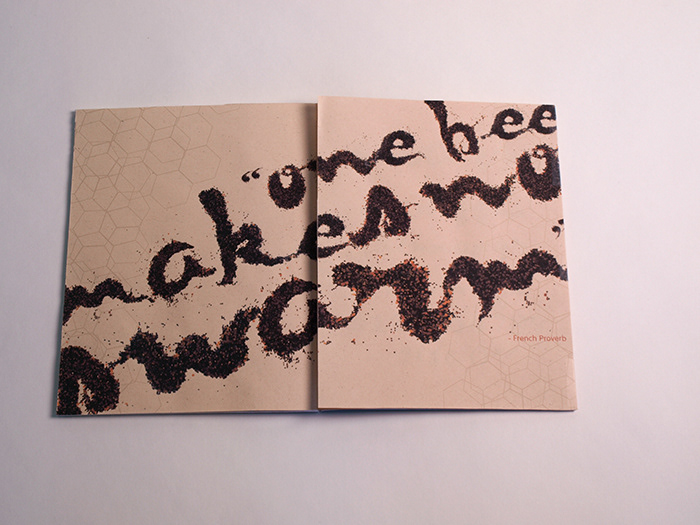 "one bee
makes no
swarm"
- French Proverb